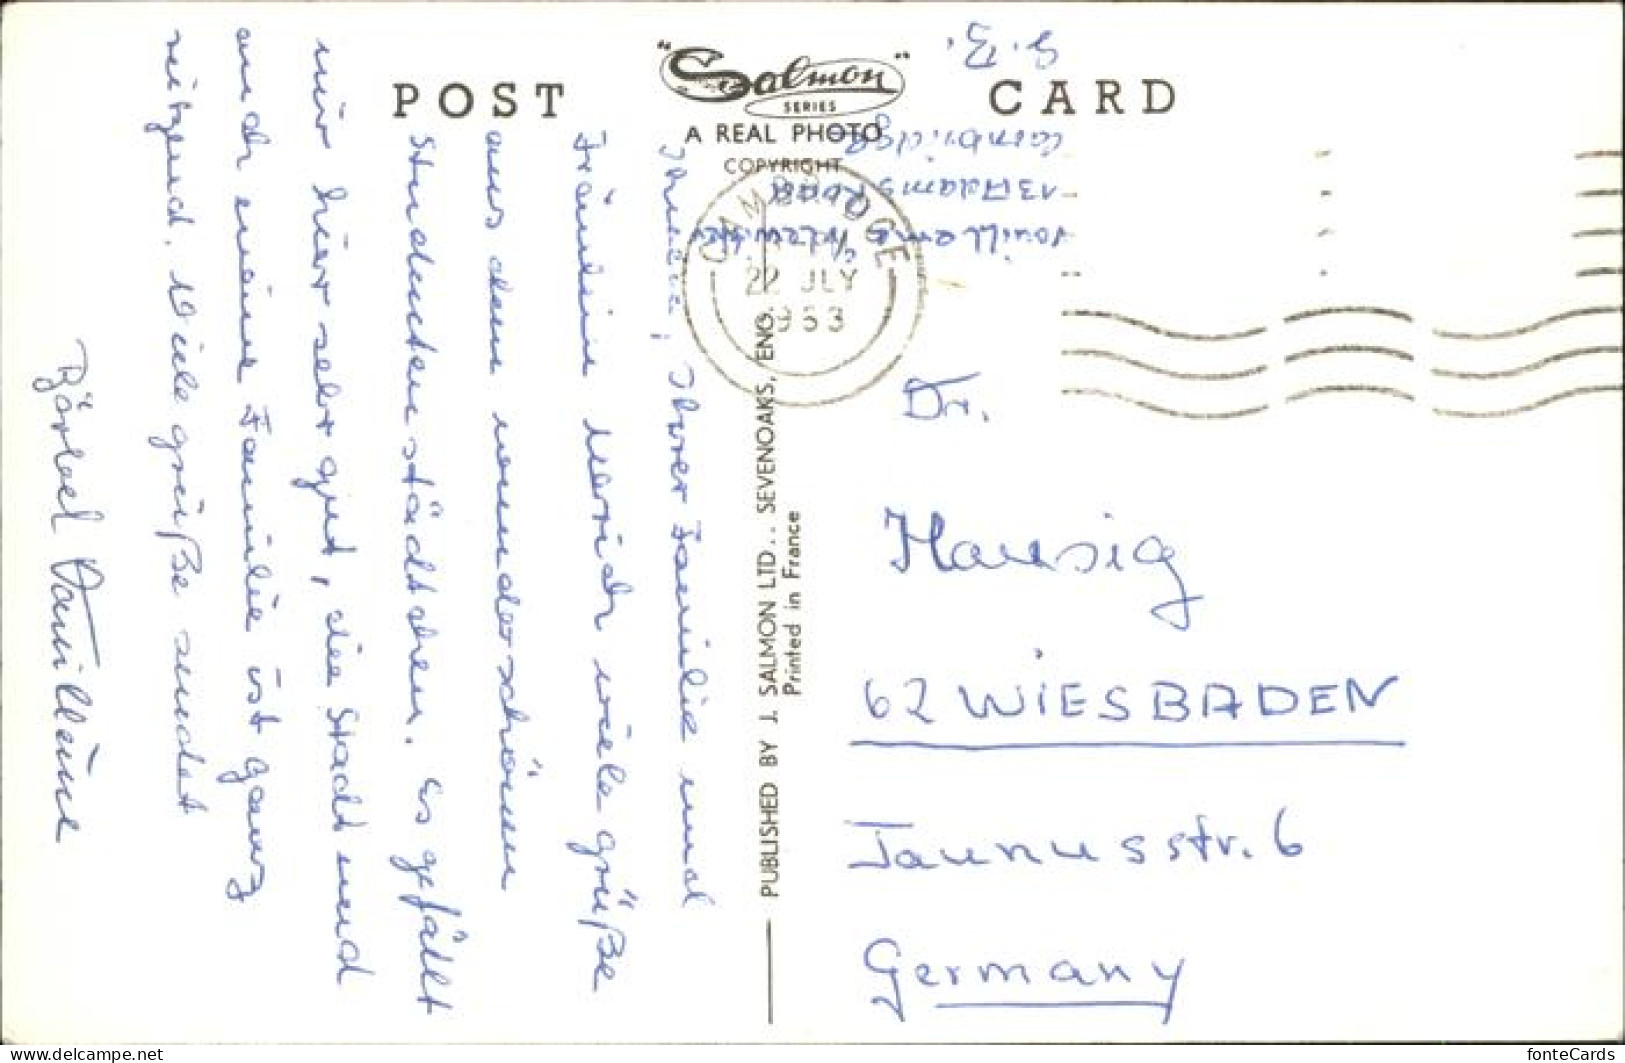 POST CARD
"Salmon"
SERIES
A REAL PHOTO
COPYRIGHT
CAMBRIDGE
22 JLY
1963
PUBLISHED BY J. SALMON LTD., SEVENOAKS, ENG.
Printed in France
Ihnen, Ihrer Familie und
Fräulein Marich viele grüße
aus dem wunderschönen
Studentenstädtchen. Es gefällt
mir hier sehr gut, die Stadt und
auch meine Familie ist ganz
reizend. Viele grüße sendet
Bärbel
13 Adams Road
Cambridge
G.B.
Dr.
Hausig
62 WIESBADEN
Taunusstr. 6
Germany
fonteCards
https://www.delcampe.net